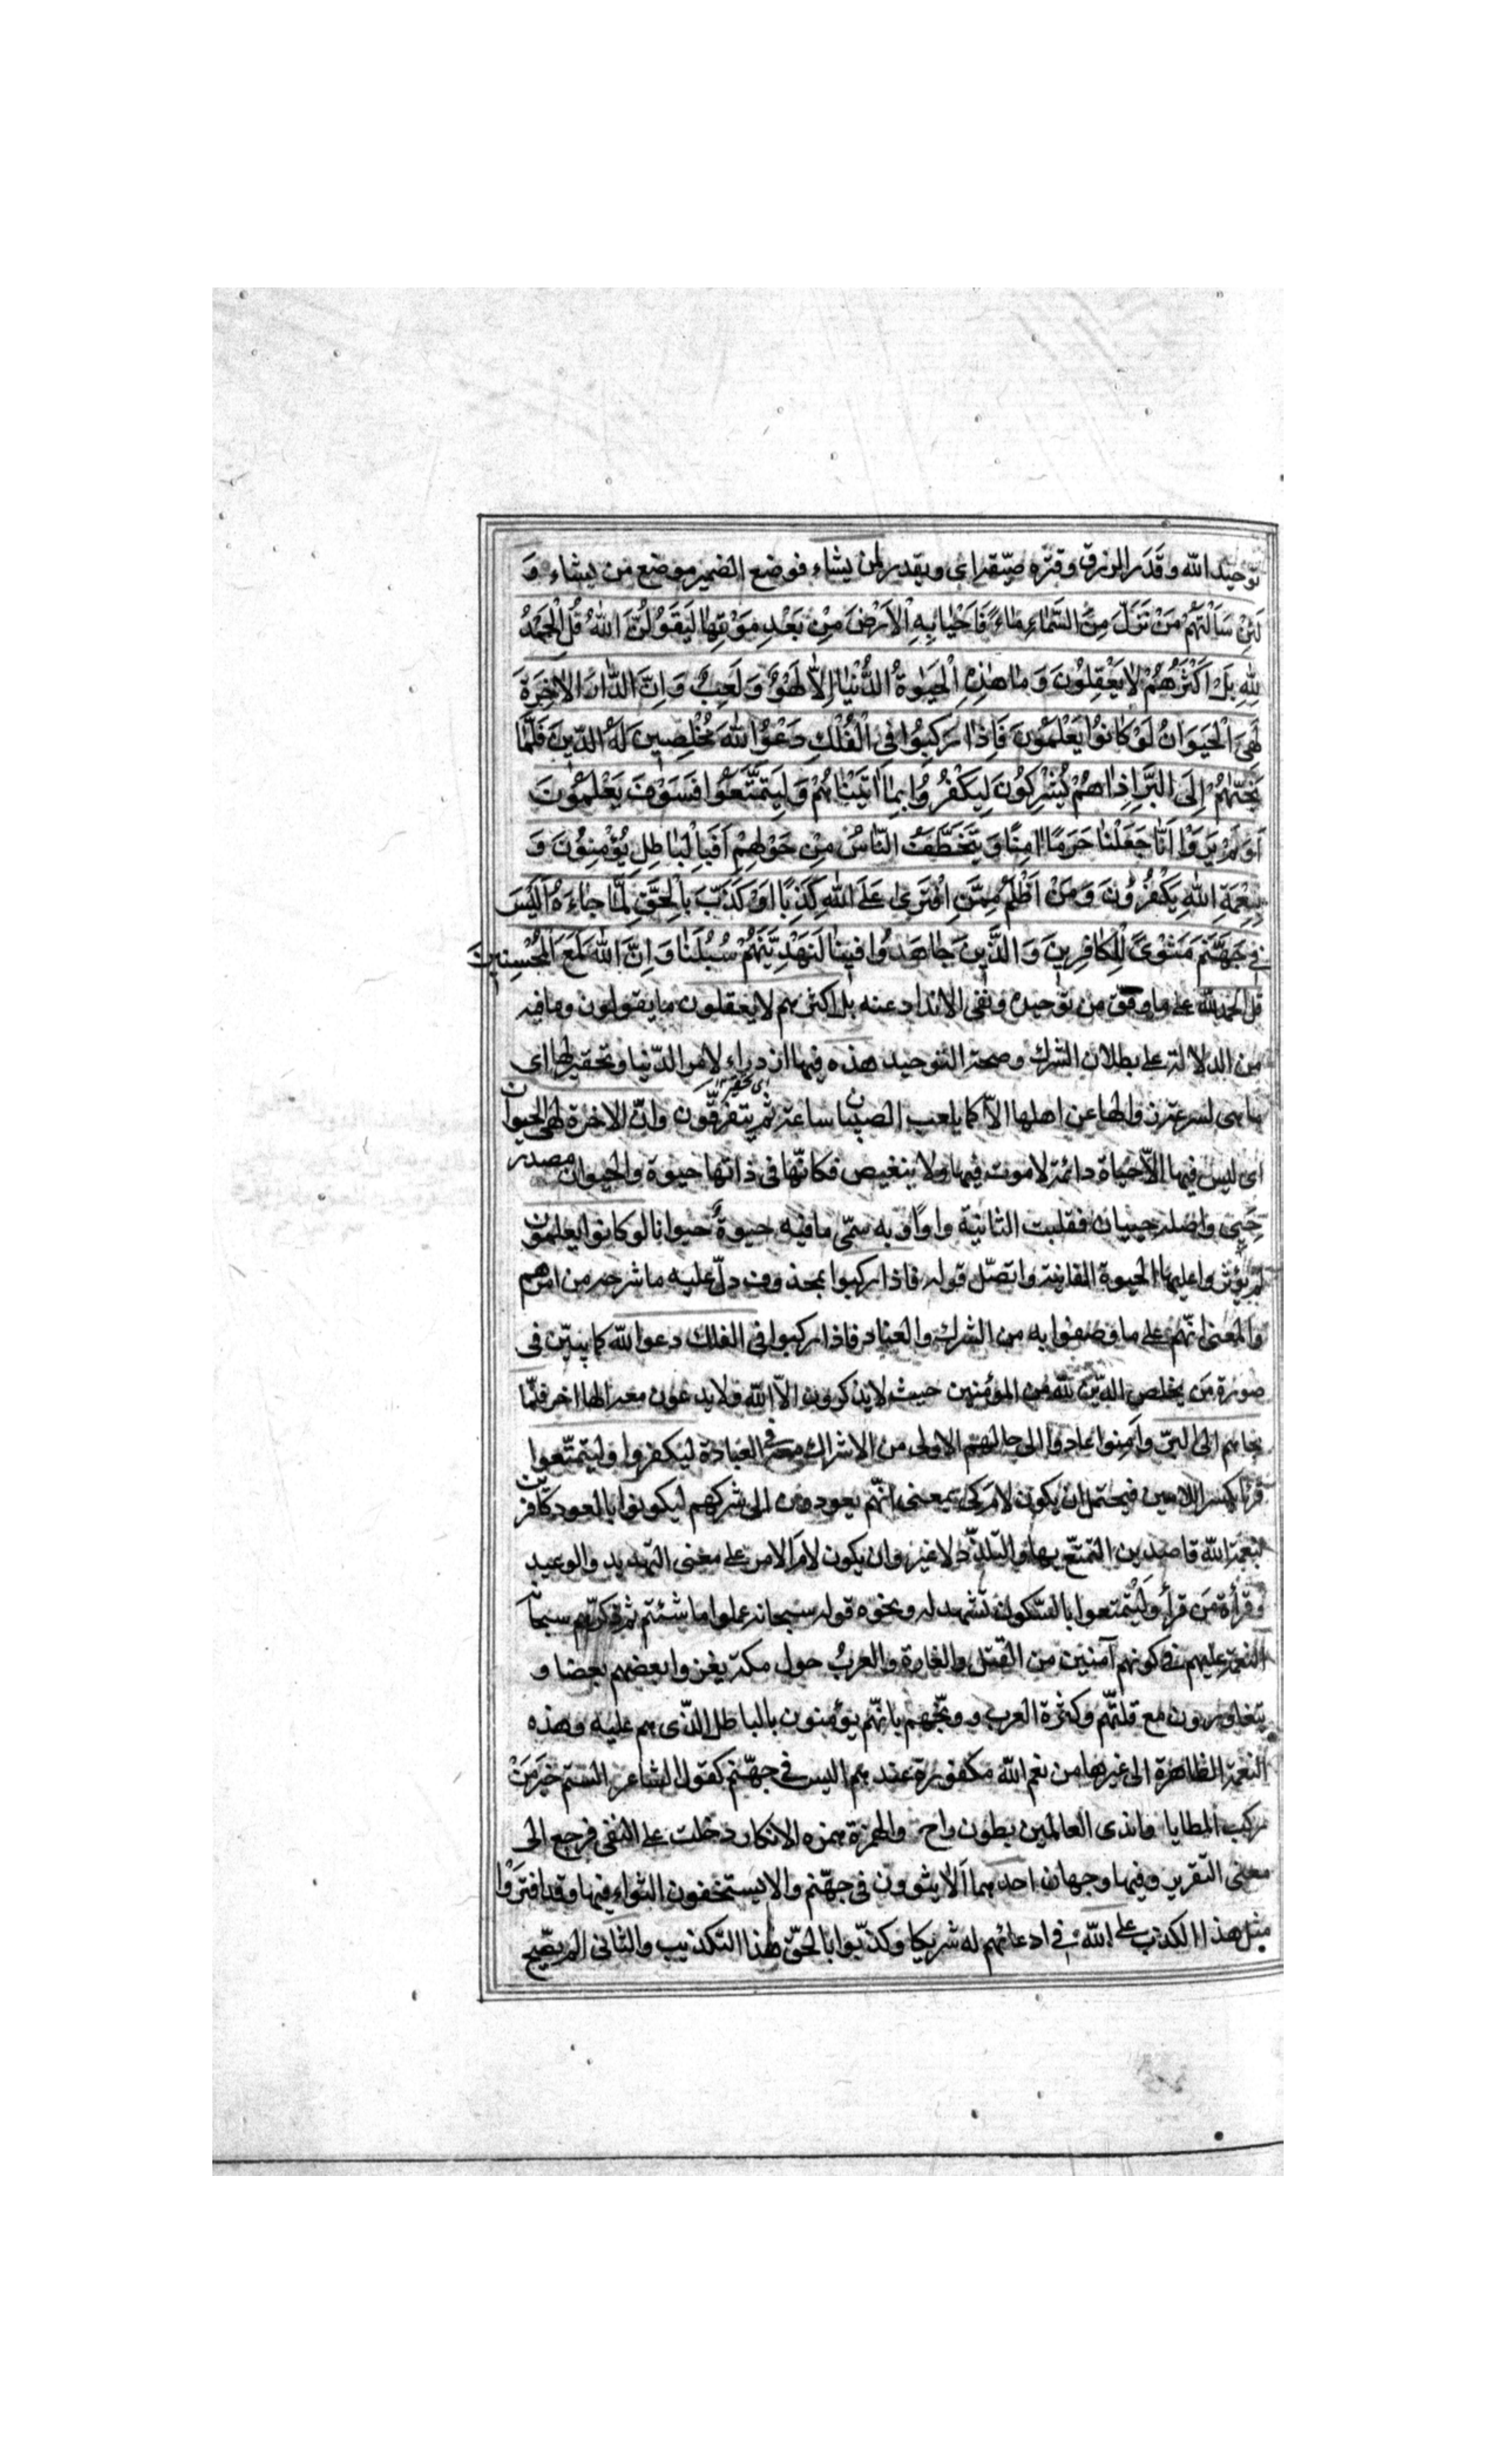 توحيد الله وقَدَر الرزق وقتره ضيّقه اى ويقدر لمن يشاء فوضع الضمير موضع من يشاء وَ
لَئِنْ سَاَلْتَهُمْ مَنْ نَزَّلَ مِنَ السَّمٰاءِ مٰاءً فَاَحْيٰا بِهِ الْاَرْضَ مِنْ بَعْدِ مَوْتِهٰا لَيَقُولُنَّ اللهُ قُلِ الْحَمْدُ
لِلّٰهِ بَلْ اَكْثَرُهُمْ لٰا يَعْقِلُونَ وَمٰا هٰذِهِ الْحَيٰوةُ الدُّنْيٰا اِلّٰا لَهْوٌ وَلَعِبٌ وَاِنَّ الدّٰارَ الْاٰخِرَةَ
لَهِيَ الْحَيَوٰانُ لَوْ كٰانُوا يَعْلَمُونَ فَاِذٰا رَكِبُوا فِي الْفُلْكِ دَعَوُا اللهَ مُخْلِصِينَ لَهُ الدِّينَ فَلَمّٰا
نَجّٰيهُمْ اِلَى الْبَرِّ اِذٰا هُمْ يُشْرِكُونَ لِيَكْفُرُوا بِمٰا اٰتَيْنٰاهُمْ وَلِيَتَمَتَّعُوا فَسَوْفَ يَعْلَمُونَ
اَوَلَمْ يَرَوْا اَنّٰا جَعَلْنٰا حَرَمًا اٰمِنًا وَيُتَخَطَّفُ النّٰاسُ مِنْ حَوْلِهِمْ اَفَبِالْبٰاطِلِ يُؤْمِنُونَ وَ
بِنِعْمَةِ اللهِ يَكْفُرُونَ وَمَنْ اَظْلَمُ مِمَّنِ افْتَرٰى عَلَى اللهِ كَذِبًا اَوْ كَذَّبَ بِالْحَقِّ لَمّٰا جٰاءَهُ اَلَيْسَ
فِي جَهَنَّمَ مَثْوًى لِلْكٰافِرِينَ وَالَّذِينَ جٰاهَدُوا فِينٰا لَنَهْدِيَنَّهُمْ سُبُلَنٰا وَاِنَّ اللهَ لَمَعَ الْمُحْسِنِينَ
قل الحمد لله على ما وفّق من توحيده ونفى الانداد عنه بل اكثرهم لا يعقلون ما يقولون وما فيه
من الدلالة على بطلان الشرك وصحة التوحيد هذه فيها ازدراء لامر الدّنيا وتحقير لها اى
ما هى لسرعة زوالها عن اهلها الاّ كما يلعب الصبيان ساعة ثم يتفرقّون وانّ الاخرة لهى الحيوان
اى ليس فيها الاّ حياة دائمة لا موت فيها ولا ينغيص فكانّها فى ذاتها حيوة والحيوان مصدر
حَيِىَ واصله حييان فقلبت الثانية واوًا وبه سمّى ما فيه حيوةٌ حيوانا لو كانوا يعلمون
لم يؤثروا عليها الحيوة الفانية واتصّل قوله فاذا ركبوا بمحذوف دلّ عليه ما شرحه من امرهم
والمعنى انّهم على ما وصفوا به من الشرك والعناد فاذا ركبوا فى الفلك دعوا الله كاينين فى
صورة مَن يخلص الدّين لله من المؤمنين حيث لا يذكرون الاّ الله ولا يدعون معه الها اخر فلمّا
نجاهم الى البرّ وآمنوا عادوا الى حالهم الاولى من الاشراك معه فى العبادة ليكفروا وليتمتّعوا
قرئ بكسر اللامين فيحتمل ان يكون لامَ كى بمعنى انّهم يعودون الى شركهم ليكونوا بالعود كافرين
لنعمة الله قاصدين التمتّع بها والتلذّذ لا غير وان يكون لامَ الامر على معنى التهديد والوعيد
وقرأة مَن قرأ وَلْيتمتعوا بالسّكون تشهد له ونحوه قوله سبحانه عملوا ما شئتم ثم ذكّرهم سبحانه
النعمة عليهم فى كونهم آمنين من القتل والغارة والعربُ حول مكة يغزوا بعضهم بعضا و
يتغاورون مع قلّتهم وكثرة العرب ووبّخهم بانّهم يؤمنون بالباطل الذّى هم عليه وهذه
النعمة الظاهرة الى غيرها من نعم الله مكفورة عندهم اليس فى جهّنم كقول الشاعر الستم خيرَ مَنْ
ركب المطايا واندى العالمين بطون راح والهمزة همزه الانكار دخلت على النفى فرجع الى
معنى التقرير وفيها وجهان احدهما اَلا يثوون فى جهّنم والا يستحقون الثواء فيها وقد افتَرَوْا
مثل هذا الكذب على الله فى ادعائهم له شريكا وكذّبوا بالحقّ هٰذا التكذيب والثانى الم يصّح